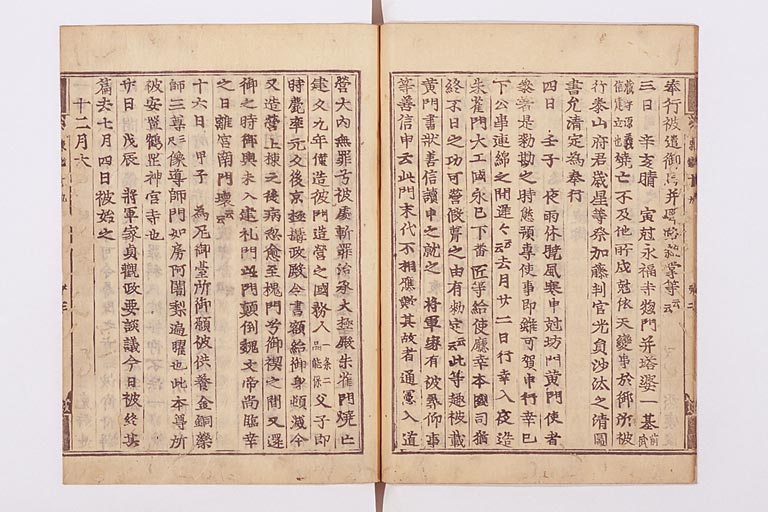 奉行被遣御馬并等云云
三日 辛亥晴 寅尅永福寺惣門并塔婆一基前武
建立也燒亡不及他所戌尅依天變事於御所被
行泰山府君歳星等祭加藤判官光負沙汰之清圖
書允清定為奉行
四日 壬子 夜雨休曉風寒申尅坊門黄門使者
參着是勅勘之時態預專使事即雖可賀申行幸已
下公事連綿之間遲々云云去月廿二日行幸入夜造
朱雀門大工國永已下番匠等給使廳幸本國司猶
終不日之功可營修葺之由有勅定云云此等趣被載
黄門書狀善信讀申之就之 將軍家有被尋仰事
等善信申云此門末代不相應歟其故者通憲入道
營大内無罪于被處斬罪治承大極殿朱雀門燒亡
建久九年僅造被門造營之國務人一條二品能保父子即
時薨卒元久後京極攝政殿令書額給御身頓滅今
又造營上棟之後病忽愈至槐門于御禊之間又還
御之時御輿未入建礼門以門顛倒魏文帝尚臨幸
之日離宮南門壞云云
十六日 甲子 為尼御堂所御願被供養金銅藥
師三尊尺像導師門如房阿闍梨遍曜也此本尊所
被安置鶴罡神宮寺也
廿日 戊辰 將軍家貞觀政要談議今日被終其
篇去七月四日被始之
十二月大